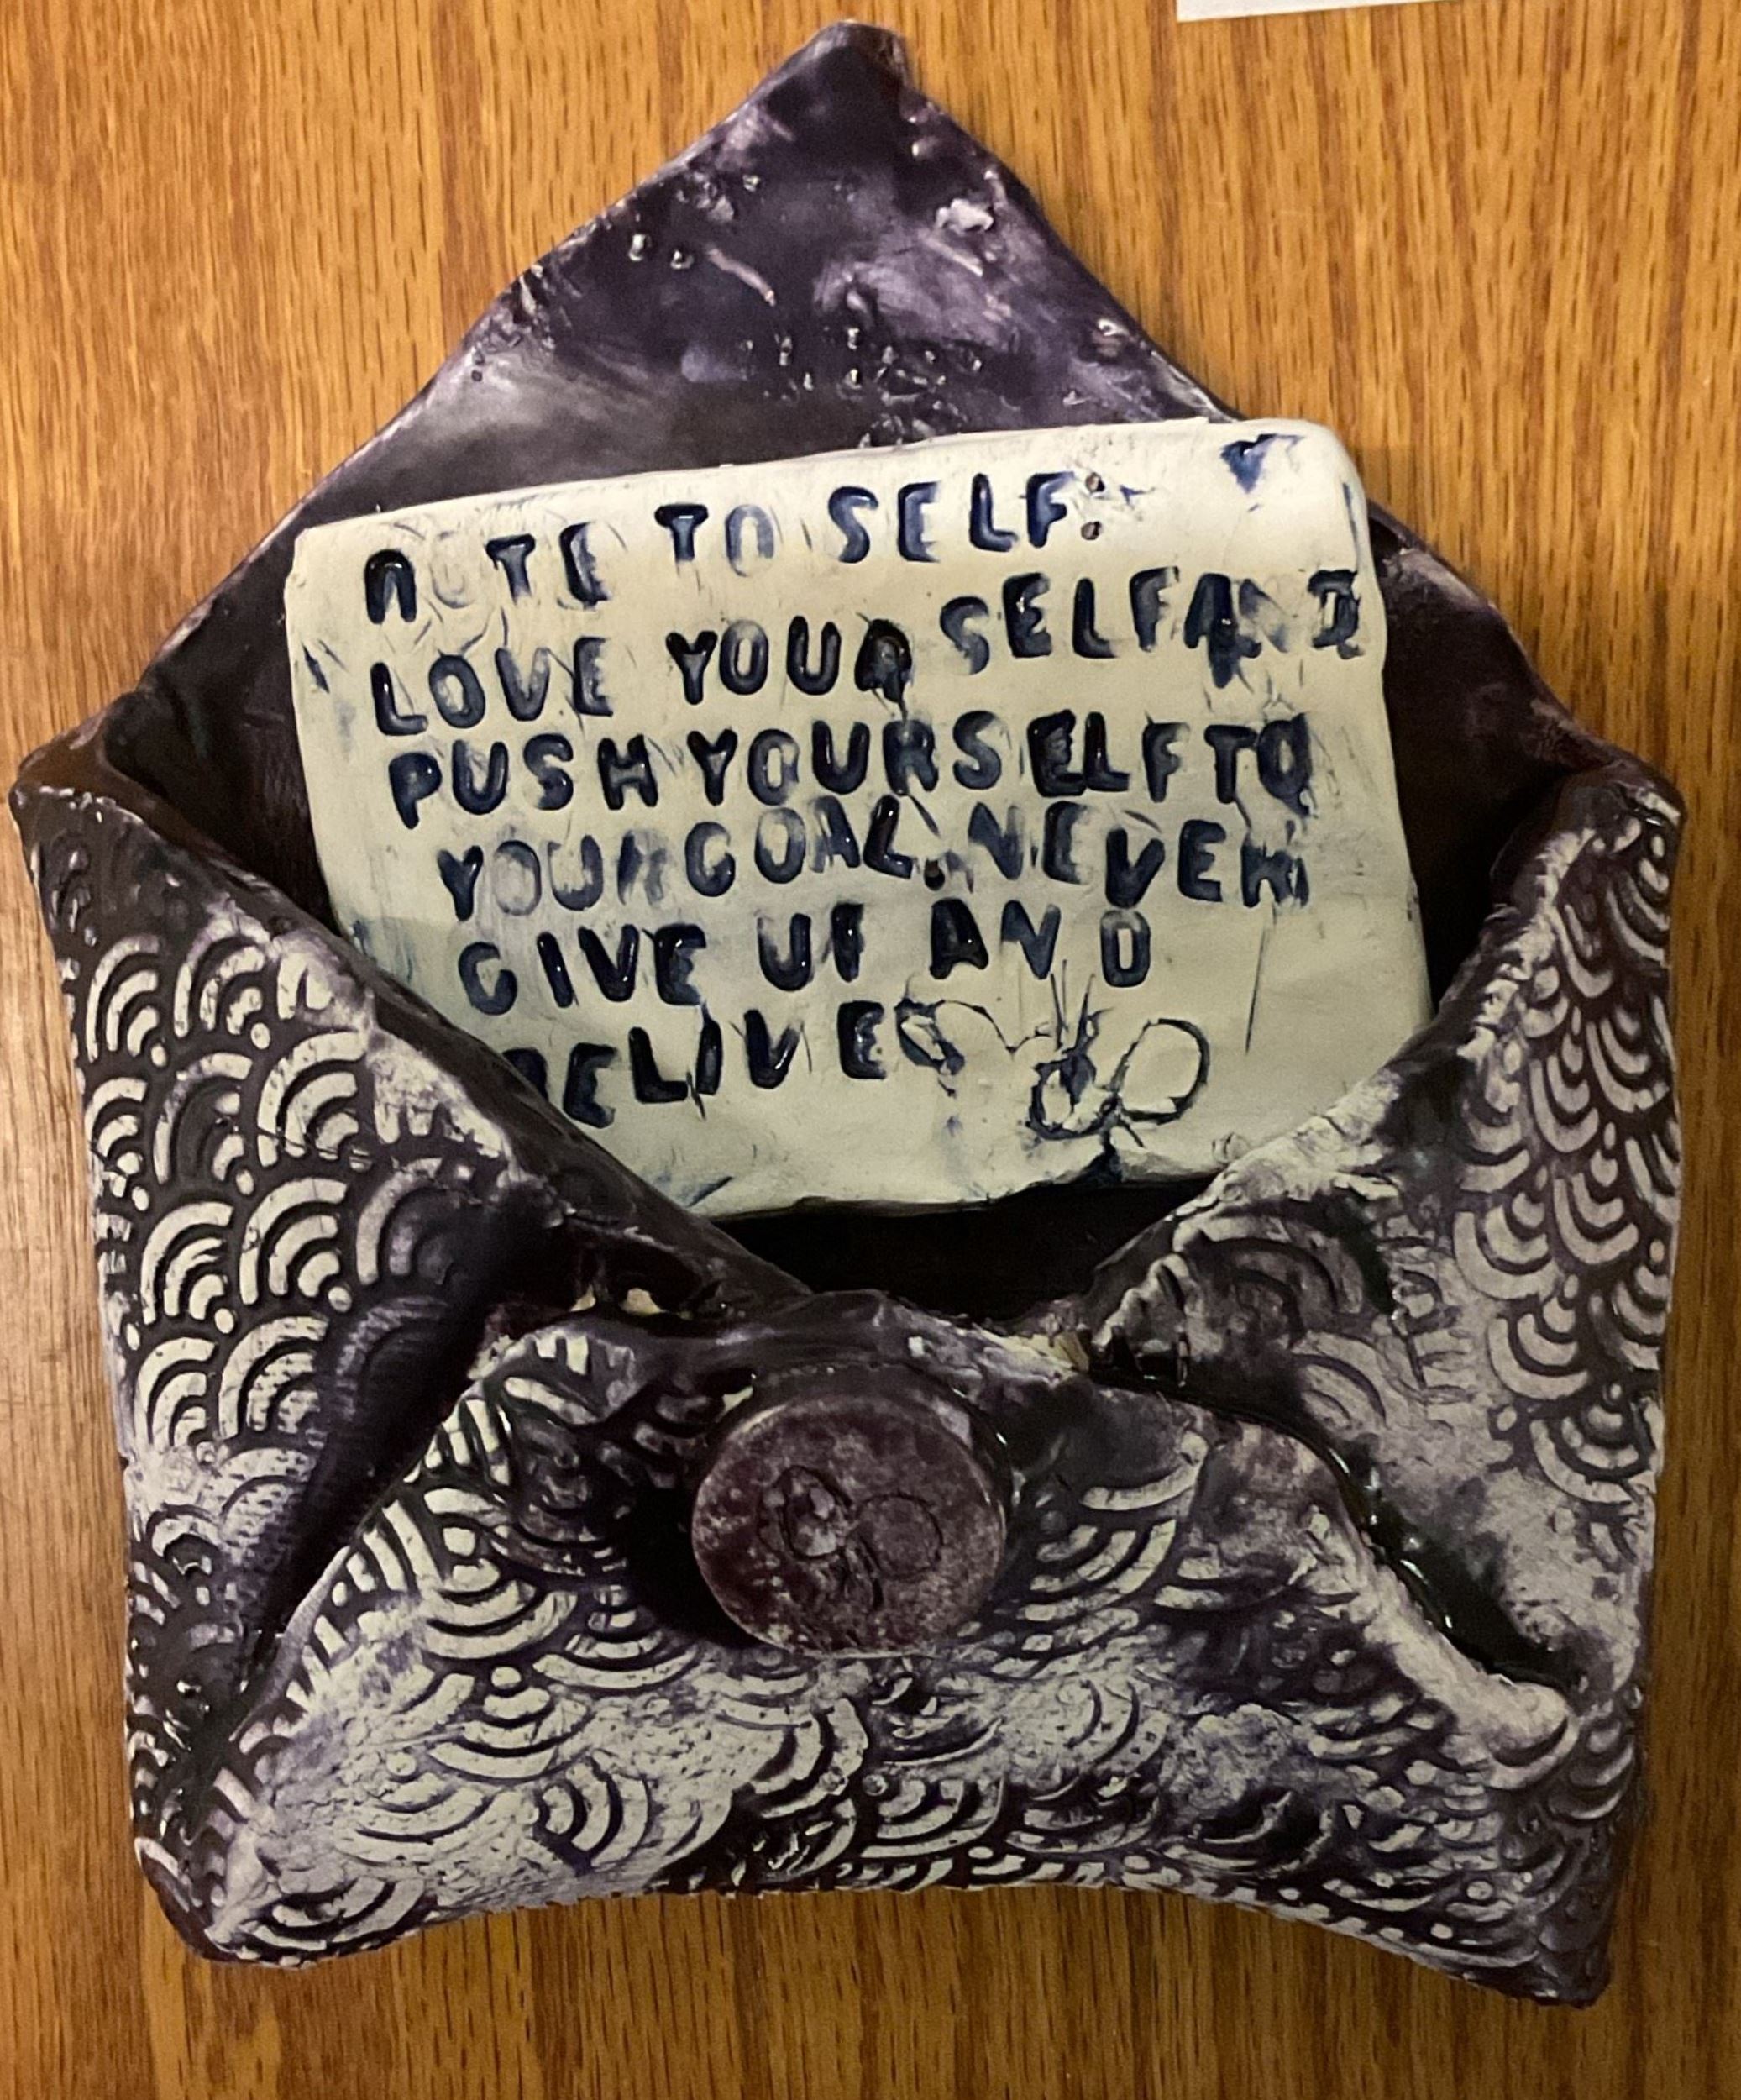 NOTE TO SELF:
LOVE YOURSELF AND
PUSH YOURSELF TO
YOUR GOAL. NEVER
GIVE UP AND